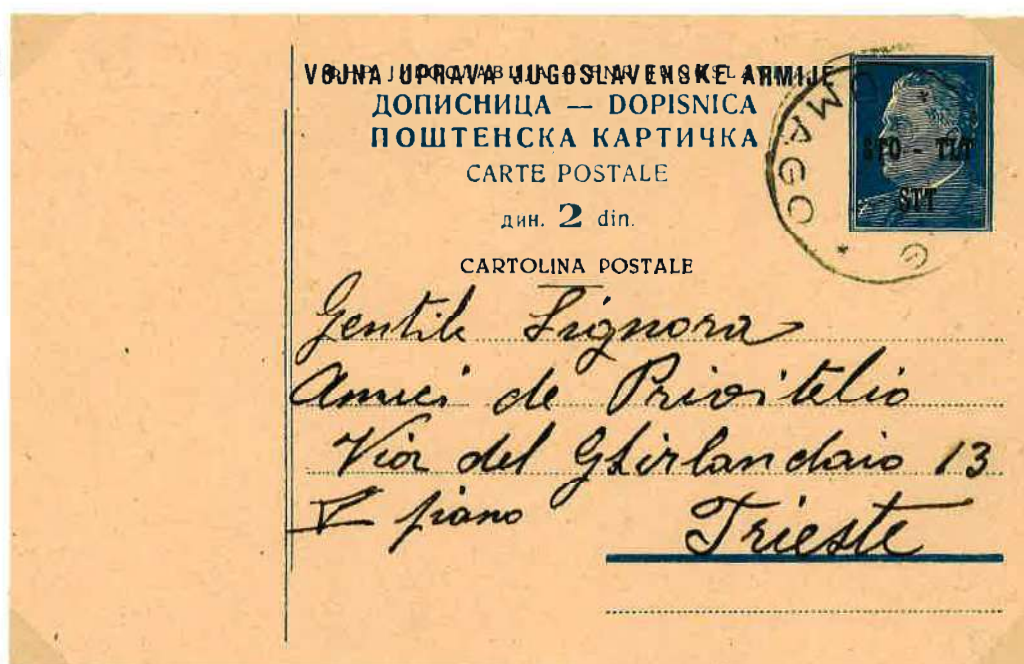 VOJNA UPRAVA JUGOSLAVENSKE ARMIJE
ДОПИСНИЦА — DOPISNICA
ПОШТЕНСКА КАРТИЧКА
CARTE POSTALE
дин. 2 din.
CARTOLINA POSTALE
STO - TLT
STT
Gentile Signora
Amici de Privitelio
Via del Ghirlandaio 13
V piano
Trieste